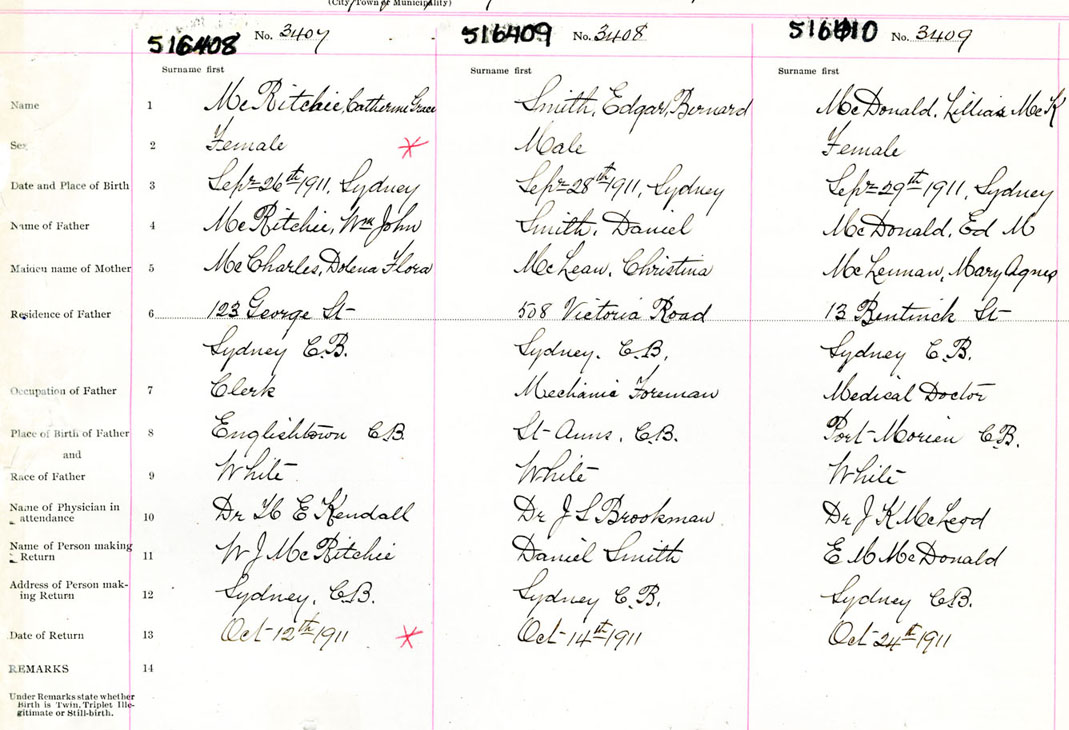 (City, Town or Municipality)
516408 No. 3407 516409 No. 3408 516410 No. 3409
Surname first Surname first Surname first
Name 1 McRitchie, Catherine Grace Smith, Edgar, Bernard McDonald, Lillias McK
Sex 2 Female Male Female
Date and Place of Birth 3 Sept 26th 1911, Sydney Sept 28th 1911, Sydney Sept 29th 1911, Sydney
Name of Father 4 McRitchie, Wm John Smith, Daniel McDonald, Ed M
Maiden name of Mother 5 McCharles, Dolena Flora McLean, Christina McLennan, Mary Agnes
Residence of Father 6 123 George St 508 Victoria Road 13 Bentinck St
Sydney C.B. Sydney. C.B. Sydney C.B.
Occupation of Father 7 Clerk Mechanic Foreman Medical Doctor
Place of Birth of Father 8 Englishtown C.B. St Anns, C.B. Port Morien C.B.
and
Race of Father 9 White White White
Name of Physician in attendance 10 Dr H E Kendall Dr J S Brookman Dr J K McLeod
Name of Person making Return 11 W J McRitchie Daniel Smith E M McDonald
Address of Person making Return 12 Sydney, C.B. Sydney C.B. Sydney C.B.
Date of Return 13 Oct 12th 1911 Oct 14th 1911 Oct 24th 1911
REMARKS 14
Under Remarks state whether
Birth is Twin, Triplet Ille-
gitimate or Still-birth.